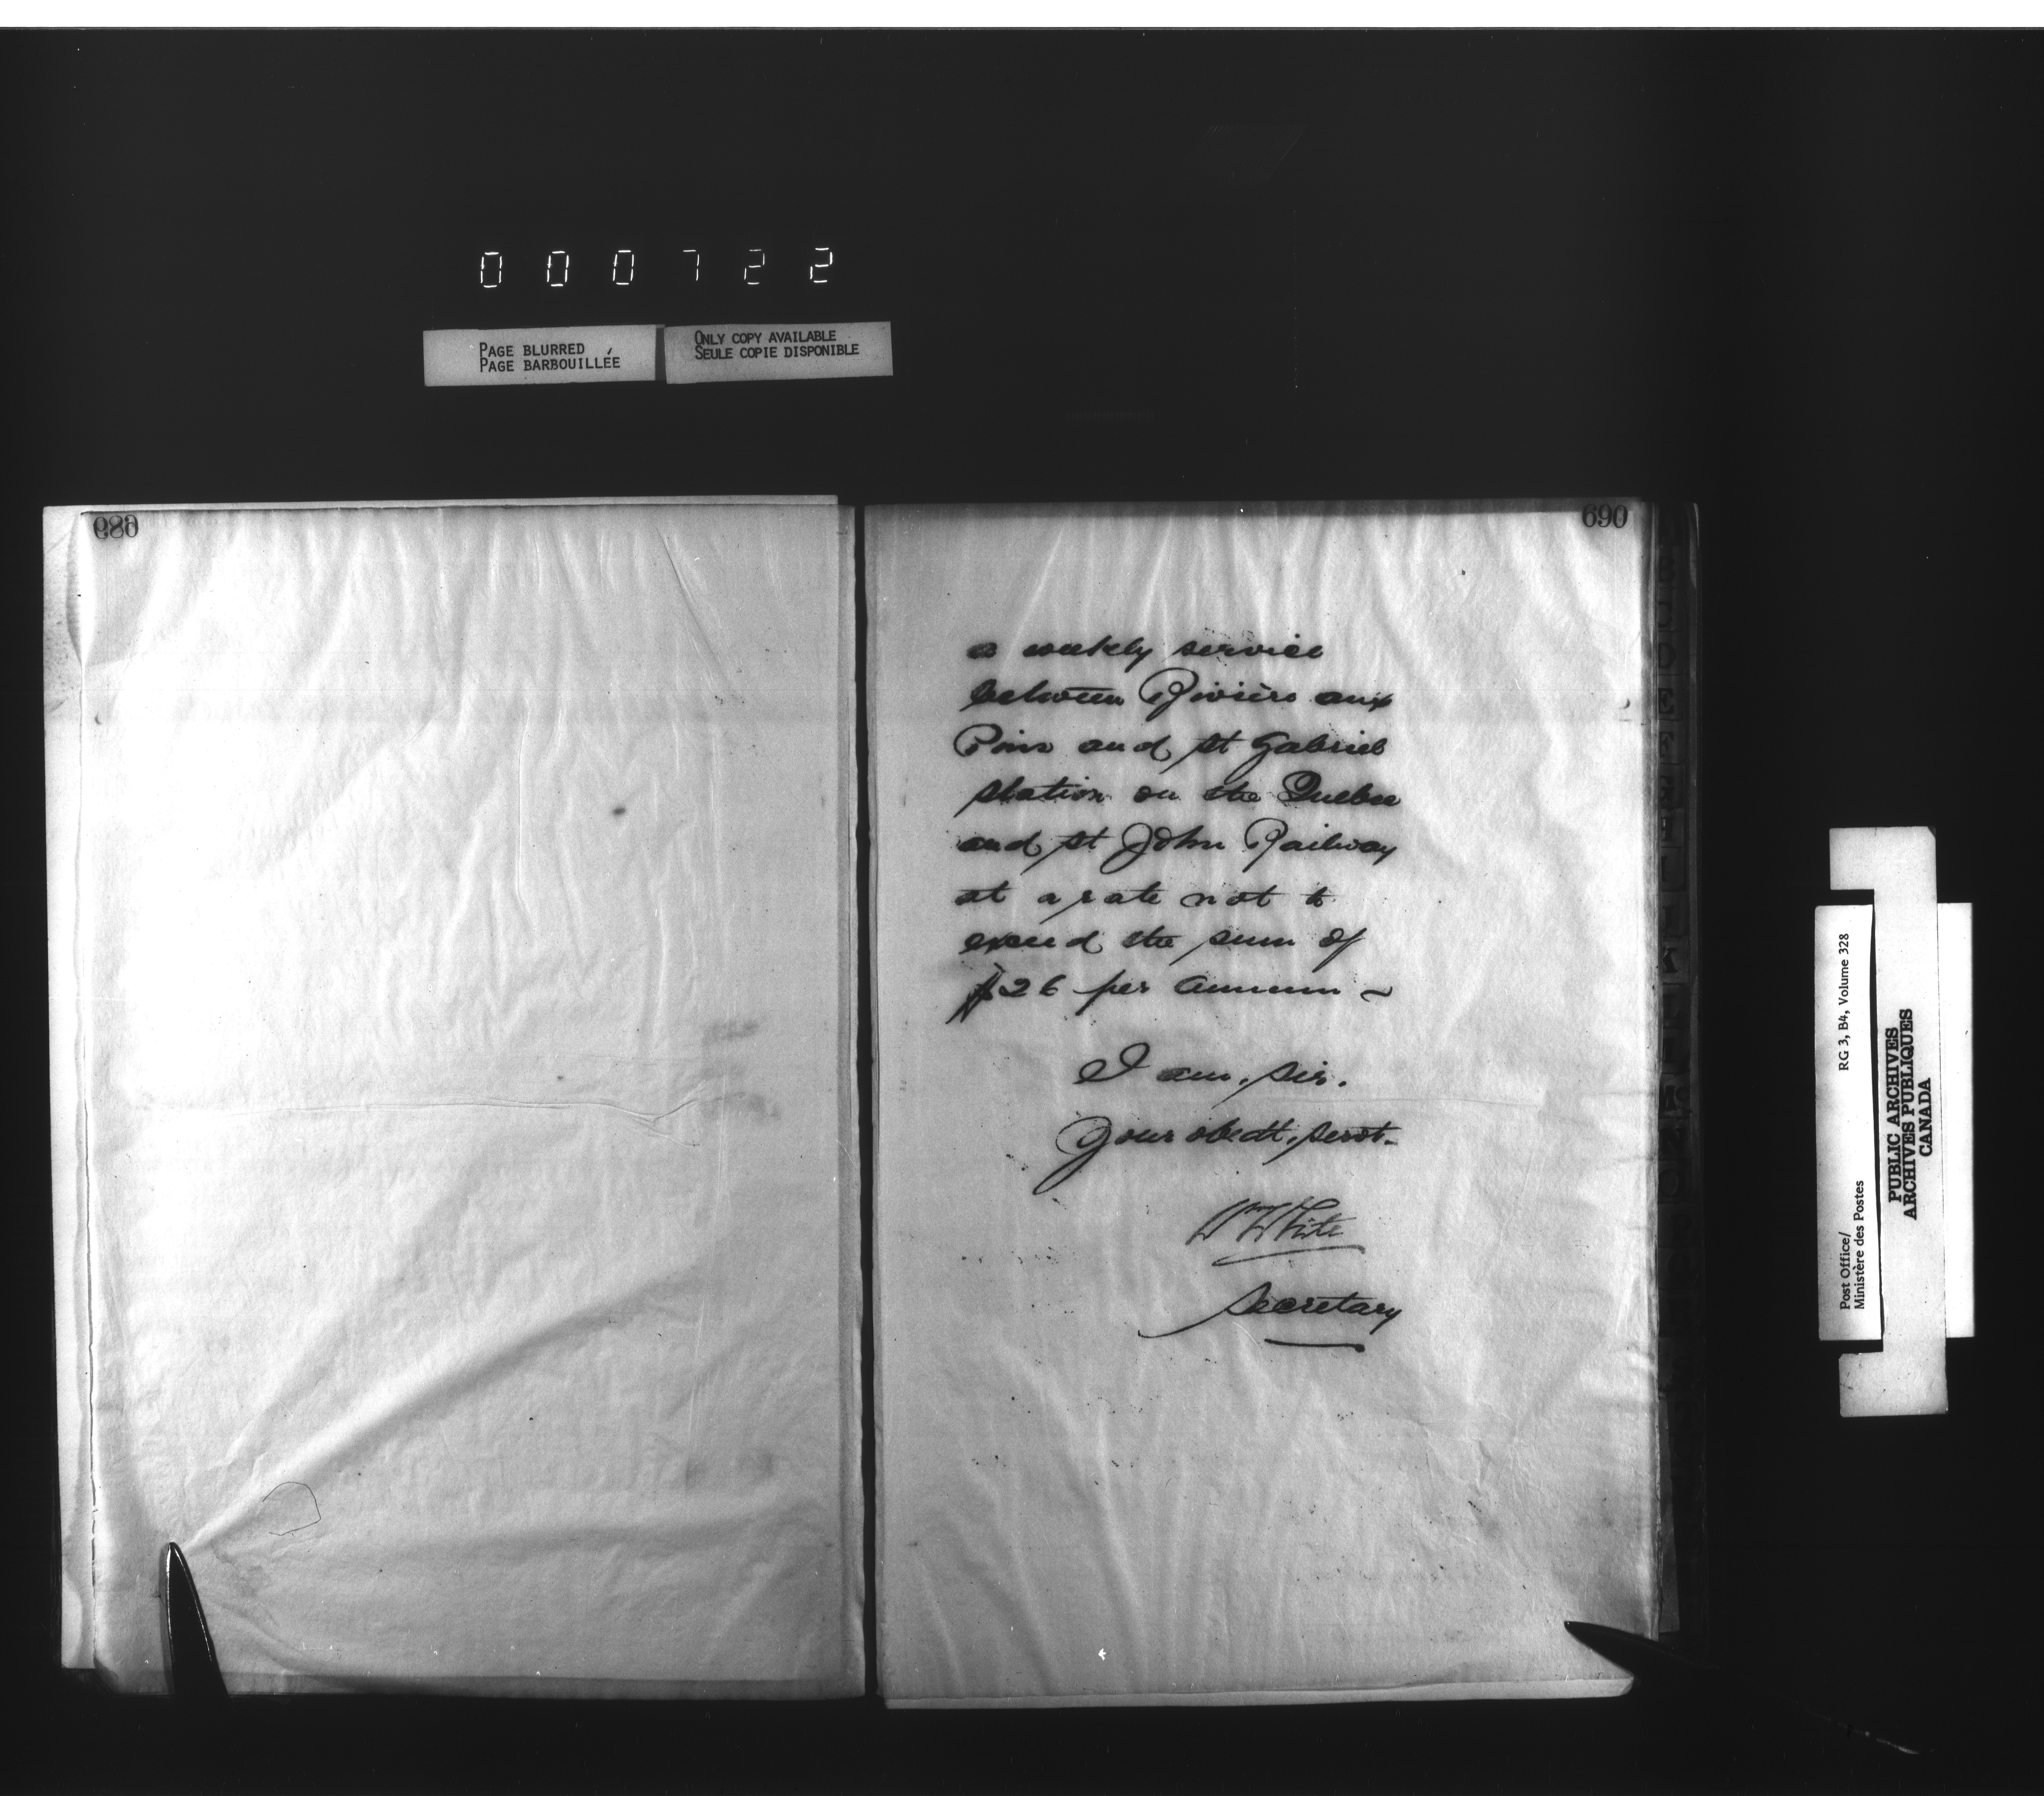 000722
PAGE BLURRED
PAGE BARBOUILLÉE
ONLY COPY AVAILABLE
SEULE COPIE DISPONIBLE
689
690
a weekly service
between Rivière aux
Pins and St Gabriel
station on the Quebec
and St John Railway
at a rate not to
exceed the sum of
$26 per annum ~
I am, Sir.
Your obedt. servt.
Wm White
Secretary
Post Office/
Ministère des Postes
RG 3, B4, Volume 328
PUBLIC ARCHIVES
ARCHIVES PUBLIQUES
CANADA